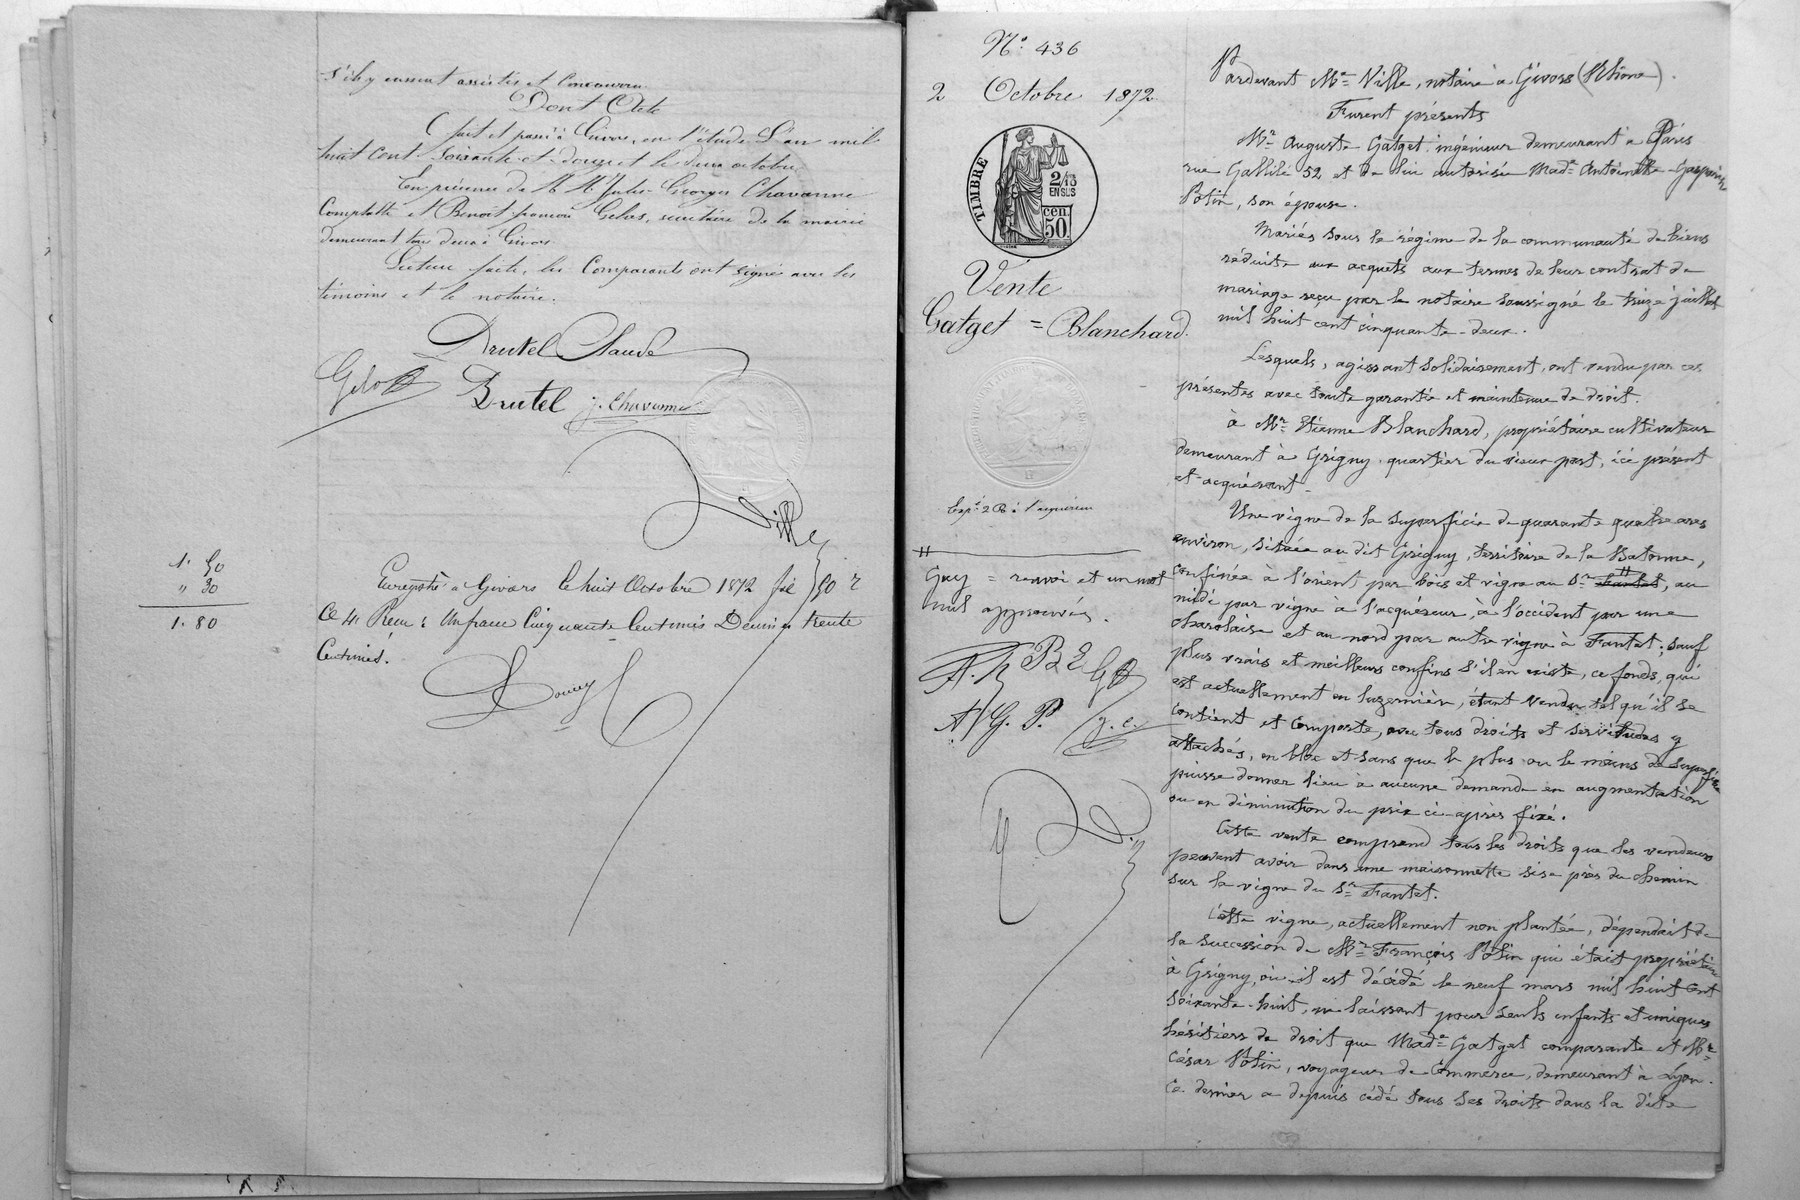 s'ils y eussent assistés et concouru.
Dont Acte
fait et passé à Givors, en l'étude L'an mil
huit cent soixante et douze et le deux octobre
En présence de M.M. Jules Georges Chavanne
Comptable et Benoît françois Gelas, secrétaire de la mairie
demeurant tous deux à Givors
Lecture faite, les Comparants ont signé avec les
témoins et le notaire.
Drutel Claude
Gelas
Drutel J. Chavanne
Ville
1. 50
" 30
1. 80
Enregistré à Givors le huit Octobre 1872 fol 50 r
Ce 4. Reçu : Un franc Cinquante Centimes Décimes trente
Centimes.
N° 436
2 Octobre 1872
TIMBRE
2/10
EN SUS
50 cen.
Vente
Gatget = Blanchard.
Exp.é 2 R à l'acquéreur
Guy = renvoi et un mot
nul approuvés.
B E G
A. G. P. J. C.
Pardevant Me Ville, notaire à Givors (Rhône).
Furent présents
Mr Auguste Gatget ingénieur demeurant à Paris
rue Gallilé 52, et de lui autorisée Made Antoinette Gasparine
Potin, son épouse.
Mariés sous le régime de la communauté de biens
réduite aux acquets aux termes de leur contrat de
mariage reçu par le notaire soussigné le treize juillet
mil huit cent cinquante-deux.
Lesquels, agissant solidairement, ont vendu par ces
présentes avec toute garantie et maintenue de droit.
à Mr Etienne Blanchard, propriétaire cultivateur
demeurant à Grigny quartier du vieux port, ici présent
et acquérant.
Une vigne de la superficie de quarante quatre ares
environ, située au dit Grigny, territoire de la Batonne,
confinée à l'orient par bois et vigne au Sr Fantet, au
midi par vigne à l'acquéreur, à l'occident par une
charolaise et au nord par autre vigne à Fantet; sauf
plus vrais et meilleurs confins s'il en existe, ce fonds, qui
est actuellement en luzernière, étant vendu tel qu'il se
contient et comporte, avec tous droits et servitudes y
attachés, en bloc et sans que le plus ou le moins de superficie
puisse donner lieu à aucune demande en augmentation
ou en diminution du prix ci-après fixé.
Cette vente comprend tous les droits que les vendeurs
peuvent avoir dans une maisonnette sise près du chemin
sur la vigne du Sr Fantet.
Cette vigne, actuellement non plantée, dépendait de
la succession de Mr François Potin qui était propriétaire
à Grigny, où il est décédé le neuf mars mil huit cent
soixante-huit, ne laissant pour seuls enfants et uniques
héritiers de droit que Made Gatget comparante et Mr
César Potin, voyageur de Commerce, demeurant à Lyon.
Ce dernier a depuis cédé tous ses droits dans la dite